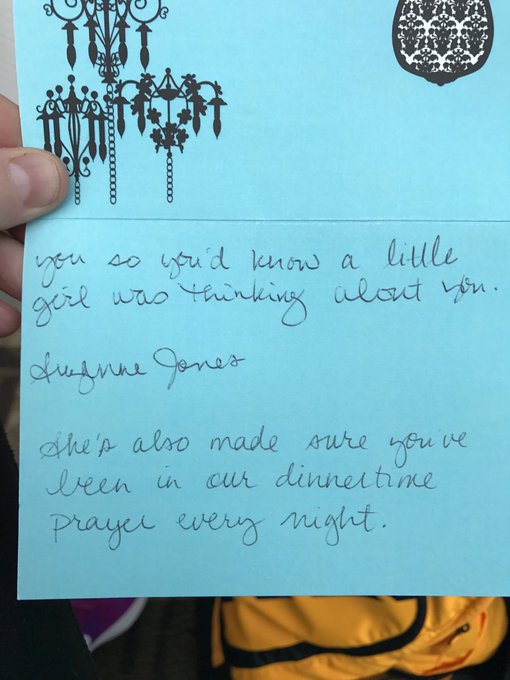 you so you'd know a little
girl was thinking about you.
Suzanne Jones
She's also made sure you've
been in our dinnertime
prayer every night.